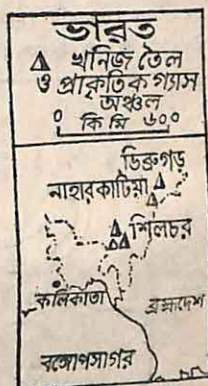 ভারত
খনিজ তৈল
ও প্রাকৃতিক গ্যাস
অঞ্চল
০ কি মি ৬০০
ডিব্রুগড়
নাহারকাটিয়া
শিলচর
কলিকাতা
ব্রহ্মদেশ
বঙ্গোপসাগর